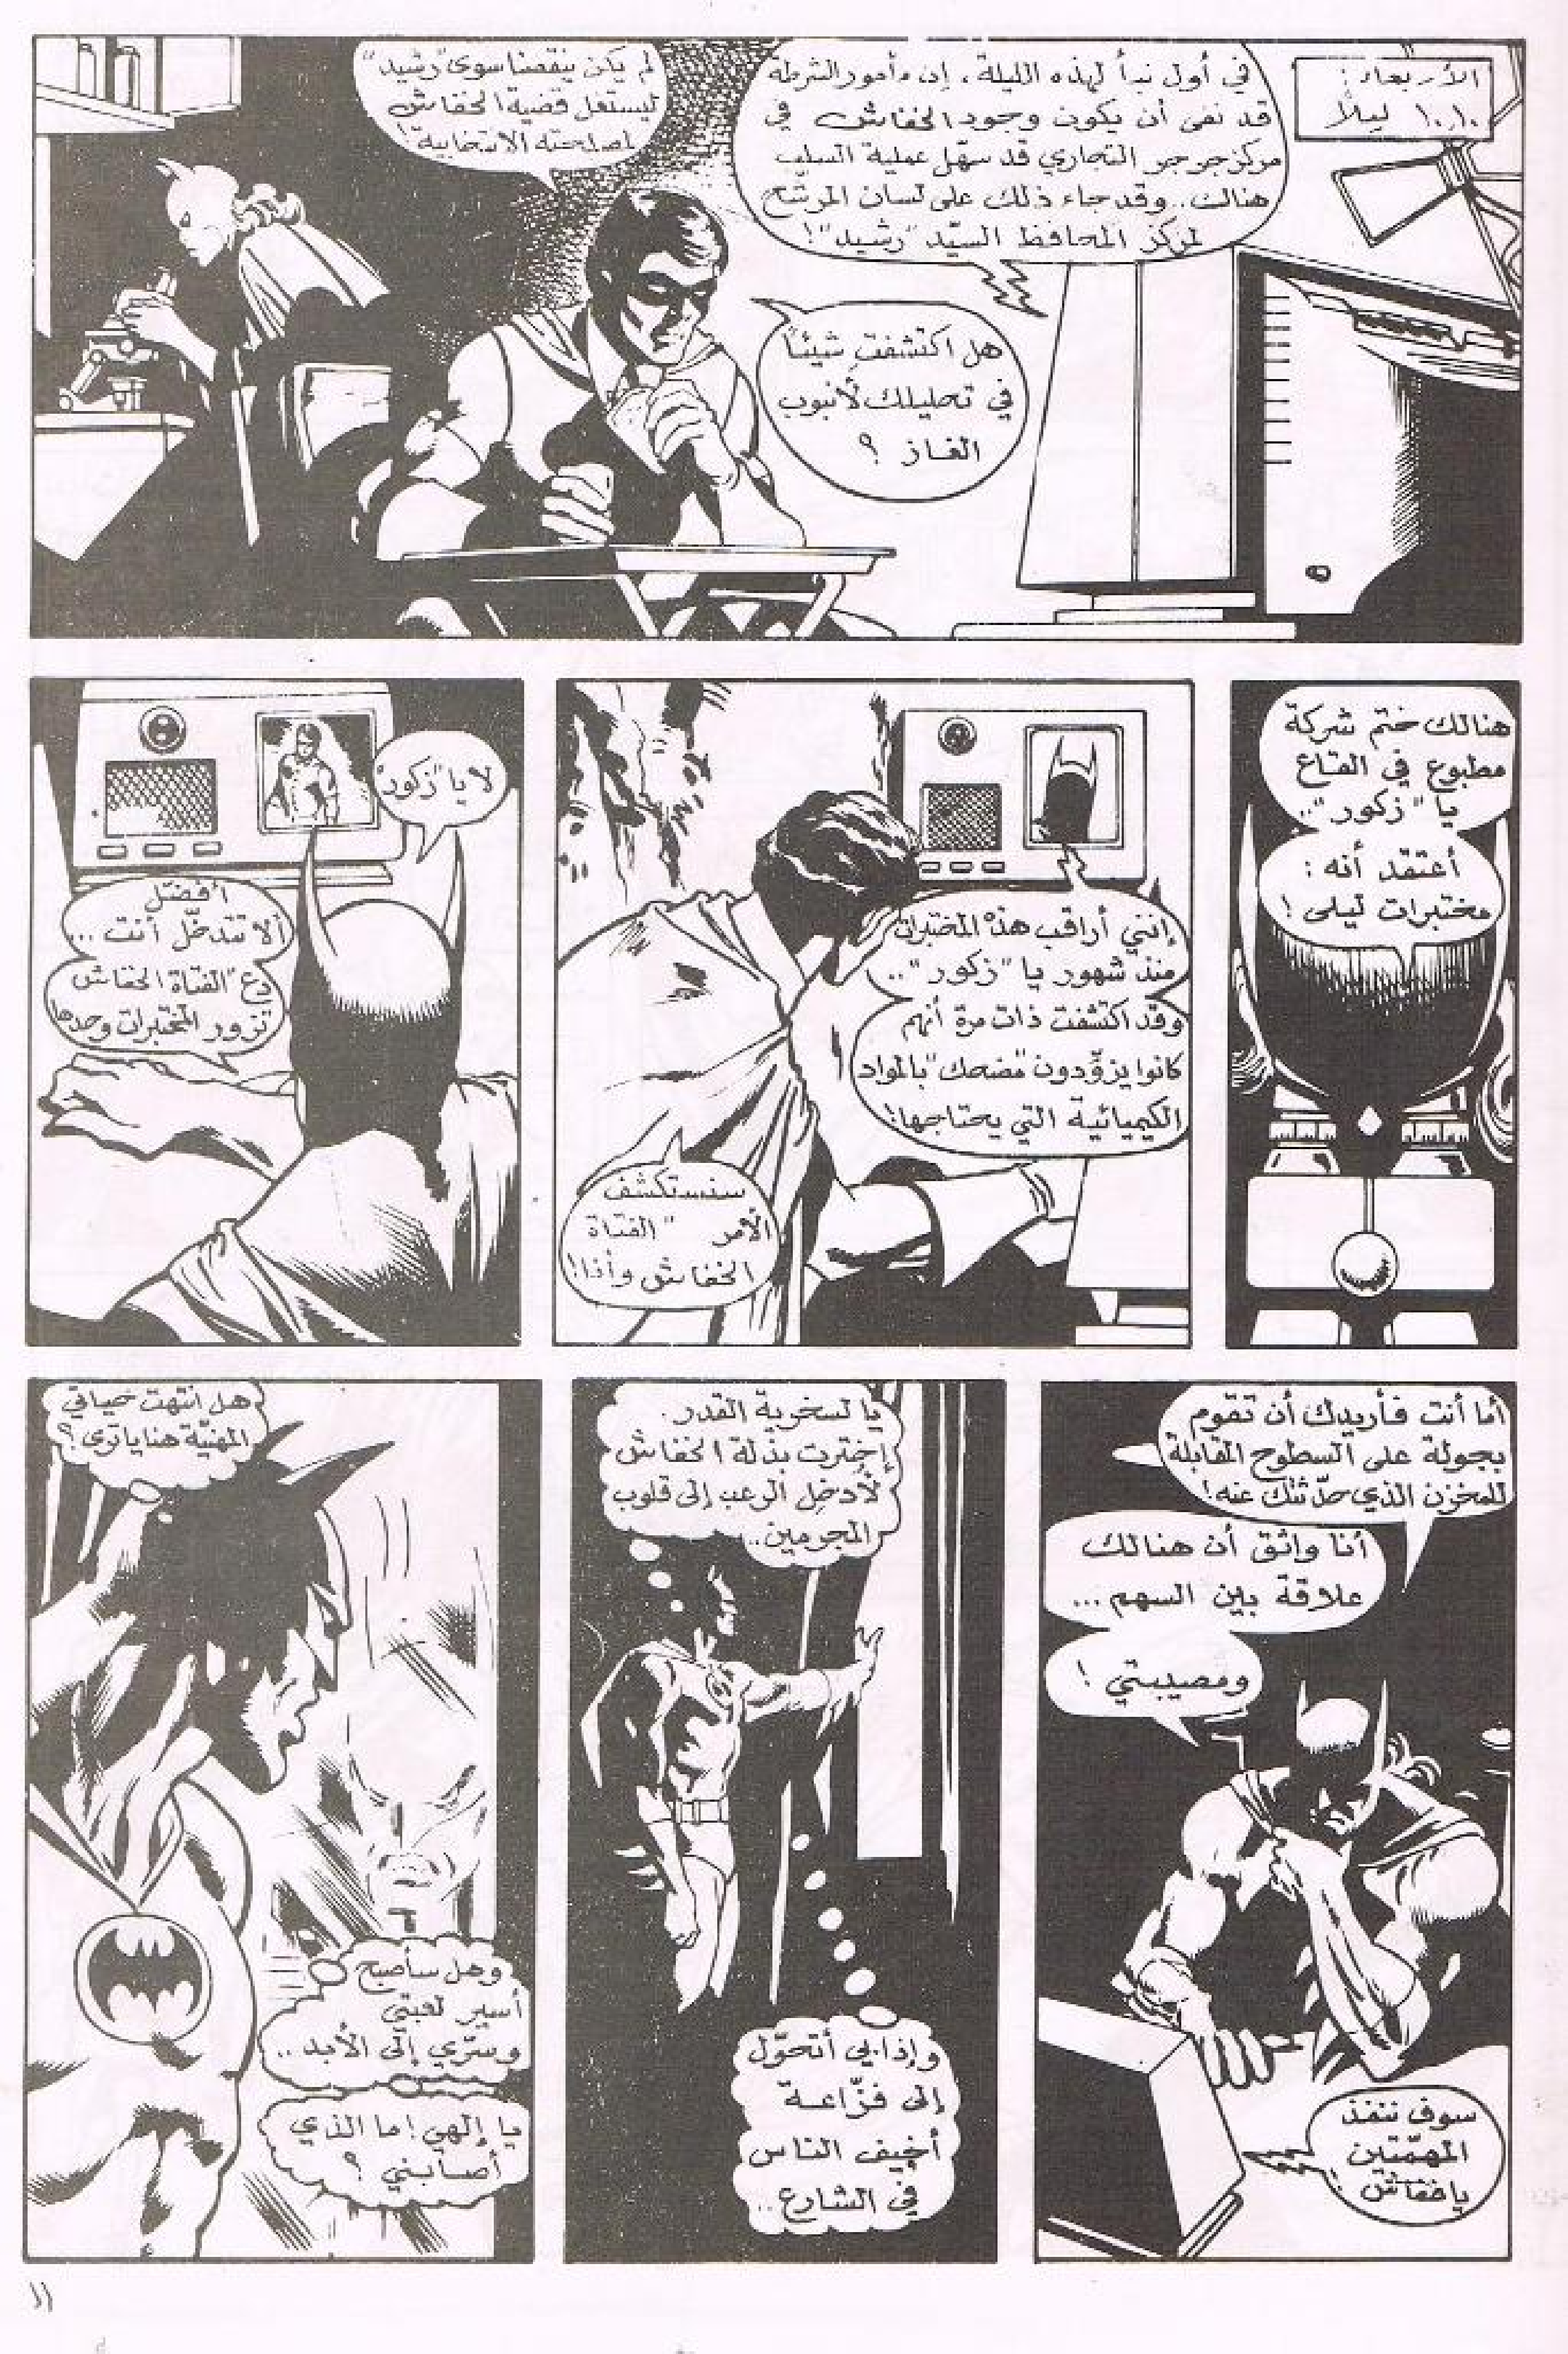 الأربعاء:
١٠,١٠ ليلاً
في أول نبأ لهذه الليلة، إن مأمور الشرطة
قد نفى أن يكون وجود الخفاش في
مركز جرجر التجاري قد سهّل عملية السلب
هنالك.. وقد جاء ذلك على لسان المرشح
لمركز المحافظ السيّد "رشيد"!
لم يكن ينقصنا سوى "رشيد"
ليستغل قضية الخفاش
لمصلحته الانتخابية!
هل اكتشفتِ شيئاً
في تحليلك لأنبوب
الغاز ؟
هنالك ختم شركة
مطبوع في القاع
يا "زكور"..
أعتقد أنه :
مختبرات ليلى !
إنني أراقب هذه المختبرات
منذ شهور يا "زكور"..
وقد اكتشفت ذات مرة أنهم
كانوا يزوّدون "مضحك" بالمواد
الكيميائية التي يحتاجها!
سنستكشف
الأمر "الفتاة
الخفاش وأنا!
لا يا "زكور"
أفضّل
ألا تتدخّل أنت ..
دع "الفتاة الخفاش
تزور المختبرات وحدها
أما أنت فأريدك أن تقوم
بجولة على السطوح المقابلة
للمخزن الذي حدّثتك عنه!
أنا واثق أن هنالك
علاقة بين السهم ...
ومصيبتي !
سوف ننفذ
المهمّتين
يا خفاش!
يا لسخرية القدر.
إخترت بذلة الخفاش
لأدخل الرعب إلى قلوب
المجرمين..
وإذا بي أتحوّل
إلى فزّاعة
أخيف الناس
في الشارع ..
هل انتهت حياتي
المهنيّة هنا يا ترى؟
وهل سأصبح
أسير لعبتي
وسرّي إلى الأبد ..
يا إلهي! ما الذي
أصابني ؟
١١